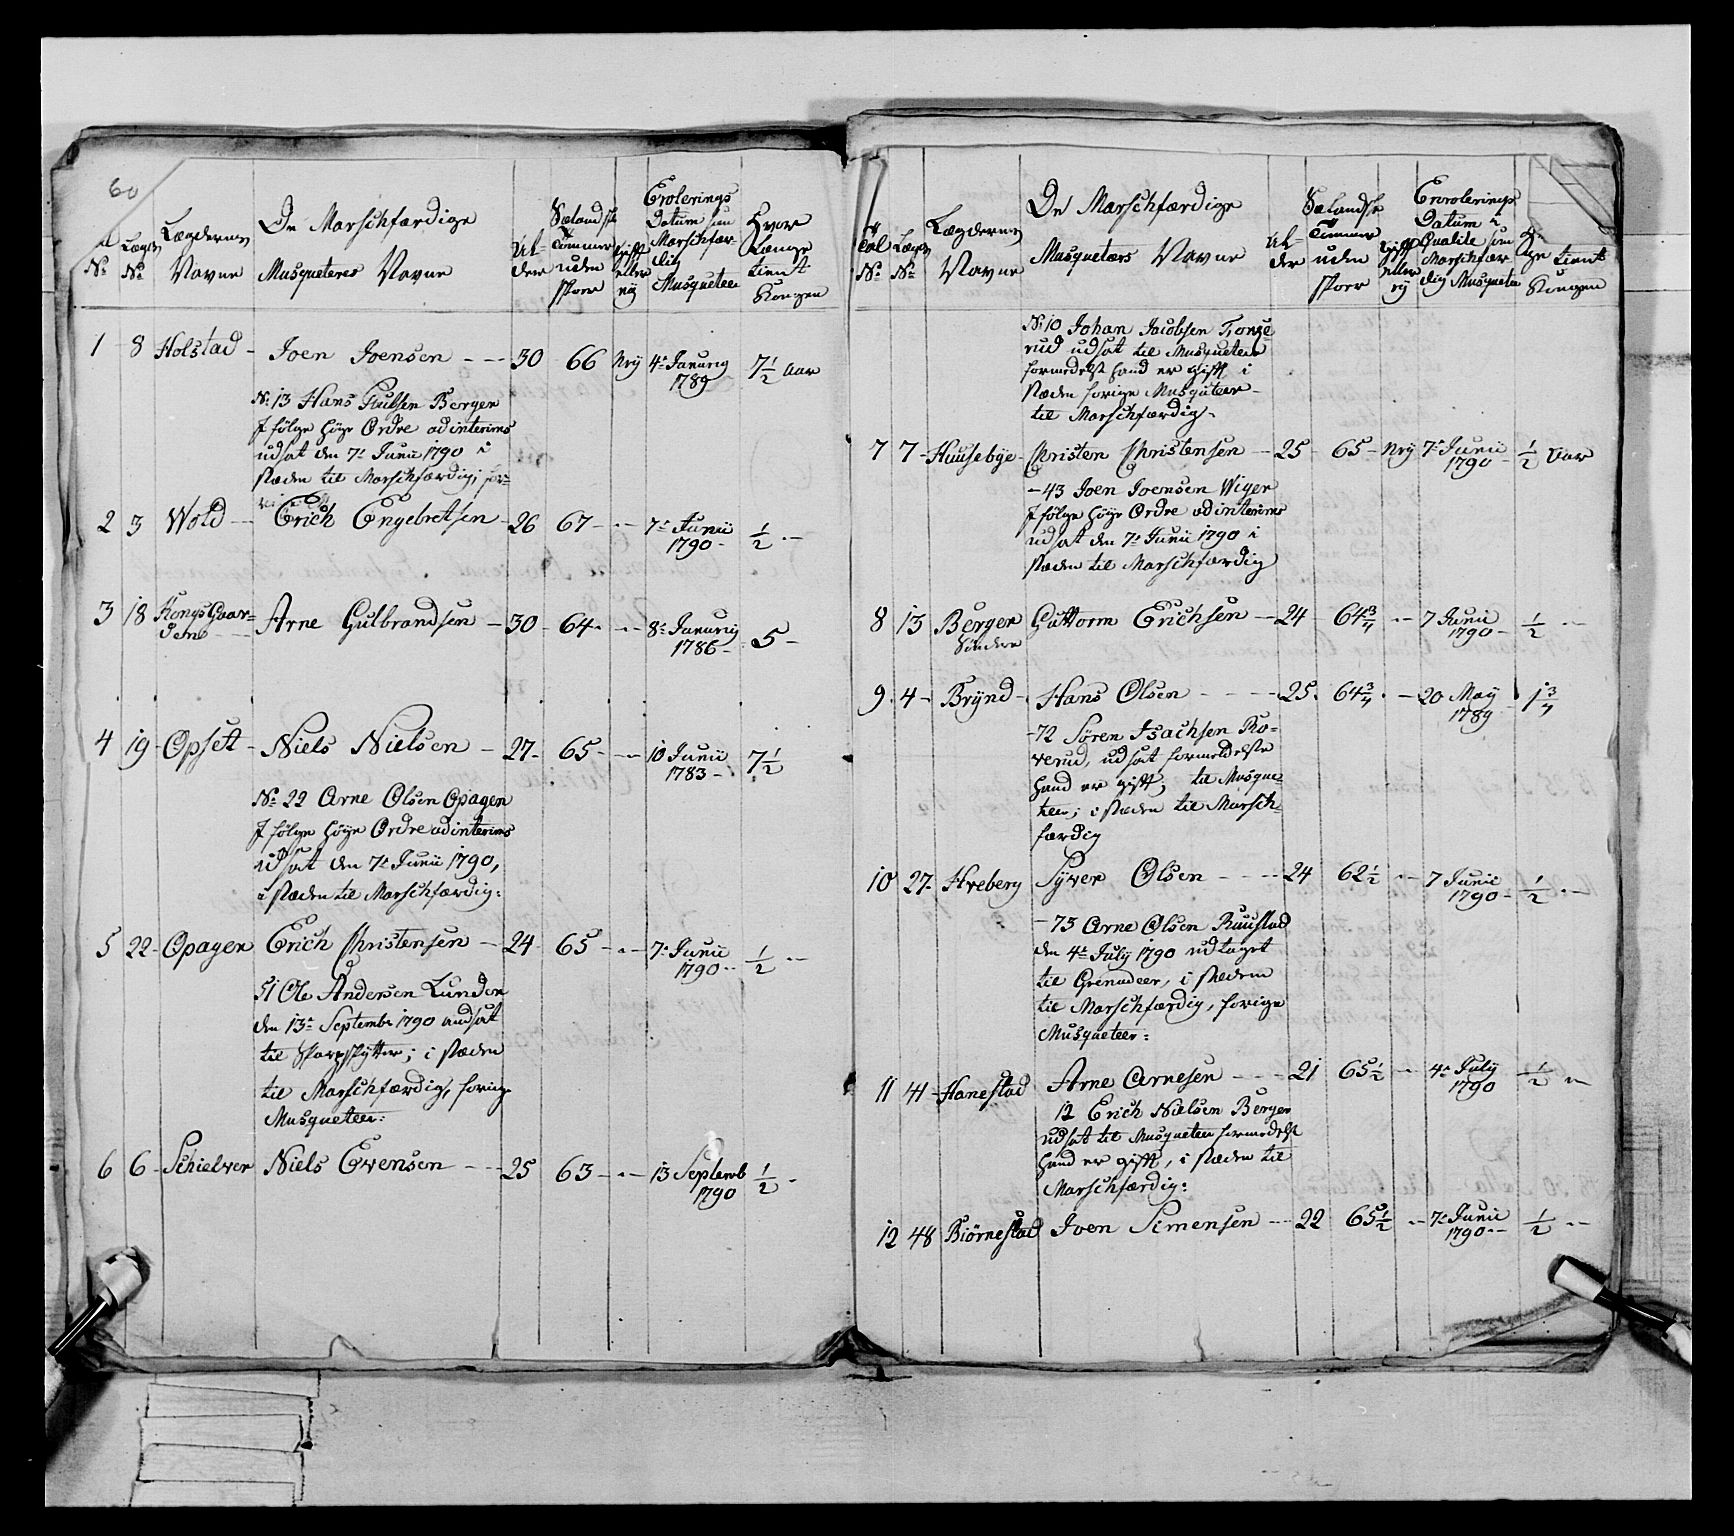 60
De Marschfærdige
Musqueteres Navne
No
Lægds
No
Lægdernes
Navne
Al-
der
Sælandske
Tommer
uden
skoer
gift
eller
eÿ
Enrolerings
Datum som
Marschfær-
dig
Musqueteer
Hvor
Længe
tient
Kongen
1 8 Holstad - Joen Joensen - - - 30 66 Neÿ 4de Januarÿ 1789 7 1/2 Aar
No 13 Hans Berger
I følge høÿe Ordre ad interims
udsat den 7de Junii 1790 i
stæden til Marschfærdig;
2 3 Wold - - Erich Engebretsen - 26 67 - - - 7de Junii 1790 - 1/2 - -
3 18 KongsGaar-
dene - Arne Gulbrandsen - 30 - 64 - - - 8de Januarÿ 1786 - 5 -
4 19 - Opset - Niels Nielsen - 27 - 65 - - - 10 Junii 1783 - 7 1/2
No 22 Arne Olsen Opagen
I følge høÿe Ordre ad interims
udsat den 7de Junii 1790,
i stæden til Marschfærdig:
5 22 - Opagen Erich Christensen - 24 - 65 - - - 7de Junii 1790 - - 1/2 - -
51 Ole Andersen Lunden
den 13de Septembr 1790 audsat
til Skarpskytter; i stæden
til Marschfærdig, forrige
Musqueteer:
6 6 - Schielver Niels Evensen - - - 25 63 - - - 13 Septemb 1790 1/2 -
De Marschfærdige
Musqueteers Navne
No
Lægds
No
Lægdernes
Navne
Al-
der
Sælandske
Tommer
uden
skoer
gift
eller
eÿ
Enrolerings
Datum i
Qualite som
Marschfær-
dig Musqueteer
tient
Kongen
No 10 Johan Jacobsen
rud udsat til Musqueteer
formedelst hand er gift i
stæden forrige Musqueteer
til Marschfærdig -
7 7 - Huusebye - Christen Christensen - - 25 - 65 - Neÿ 7de Junii 1790 - 1/2 Aar
- 43 Joen Joensen Wiger
I følge høÿe Ordre ad interims
udsat den 7de Junii 1790 i
stæden til Marschfærdig
8 13 Berger
Søndere Guttorm Erichsen - - 24 64 3/4 - - 7 Junii 1790 - 1/2 - -
9 - 4 - Brÿnd - Hans Olsen - - - - 25 - 64 3/4 - - 20 Maÿ 1789 - 1 3/4
- 72 Sören Isachsen Ro-
verud, udsat formedelste
hand er gift; til Musque-
teer; i stæden til Marsch-
færdig
10 27 - Hveberg Sÿver Olsen - - - - 24 62 1/2 - - 7 Junii 1790 - 1/2 - -
- 73 Arne Olsen Ruustad
den 4de Julÿ 1790 udtaget
til Grenadeer, i stædene
til Marschfærdig, forrige
Musqueteer:
11 41 - Hanestad Arne Arnesen - - - 21 65 1/2 - - 4de Julÿ 1790 1/2 - -
12 Erich Nielsen Berger
udsat til Musqueteer formedelst
hand er gift, i stæden til
Marschfærdig:
12 48 Biørnestad Joen Simensen - - 22 65 1/2 - - 7de Junii 1790 - - 1/2 - -